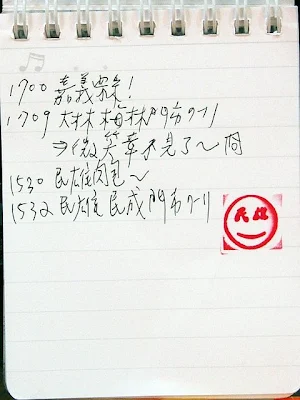 1700 嘉義縣!
1709 大林梅林門市ㄅㄧ
⇒微笑章不見了~冏
1530 民雄肉包~
1532 民雄民成門市ㄅㄧ
民雄